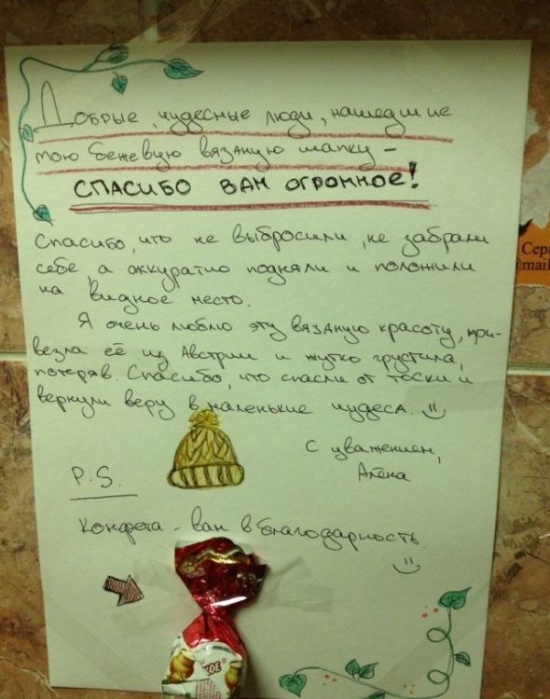 Добрые, чудесные люди, нашедшие
мою бежевую вязаную шапку –
СПАСИБО ВАМ ОГРОМНОЕ!
Спасибо, что не выбросили, не забрали
себе, а аккуратно подняли и положили
на видное место.
Я очень люблю эту вязаную красоту, при-
везла её из Австрии и жутко грустила,
потеряв. Спасибо, что спасли от тоски и
вернули веру в маленькие чудеса.
С уважением,
Алёна
P.S.
Конфета – вам в благодарность
Серг
@mail